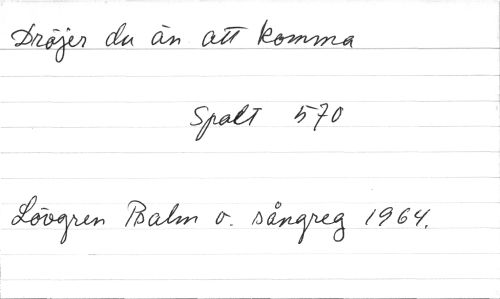 Dröjer du än att komma
Spalt 570
Lövgren Psalm o. sångreg 1964.